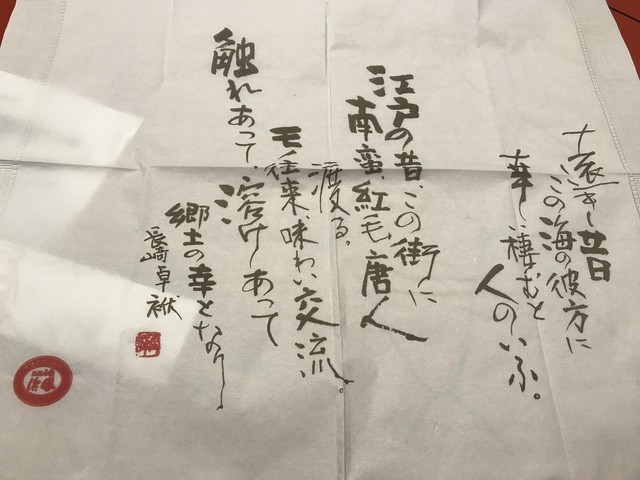 遠き昔
この海の彼方に
幸い棲むと
人のいふ。
江戸の昔、この街に
南蛮、紅毛、唐人
渡る。
往来、味わい交流。
触れあって、溶けあって
郷土の幸となりし
長崎卓袱